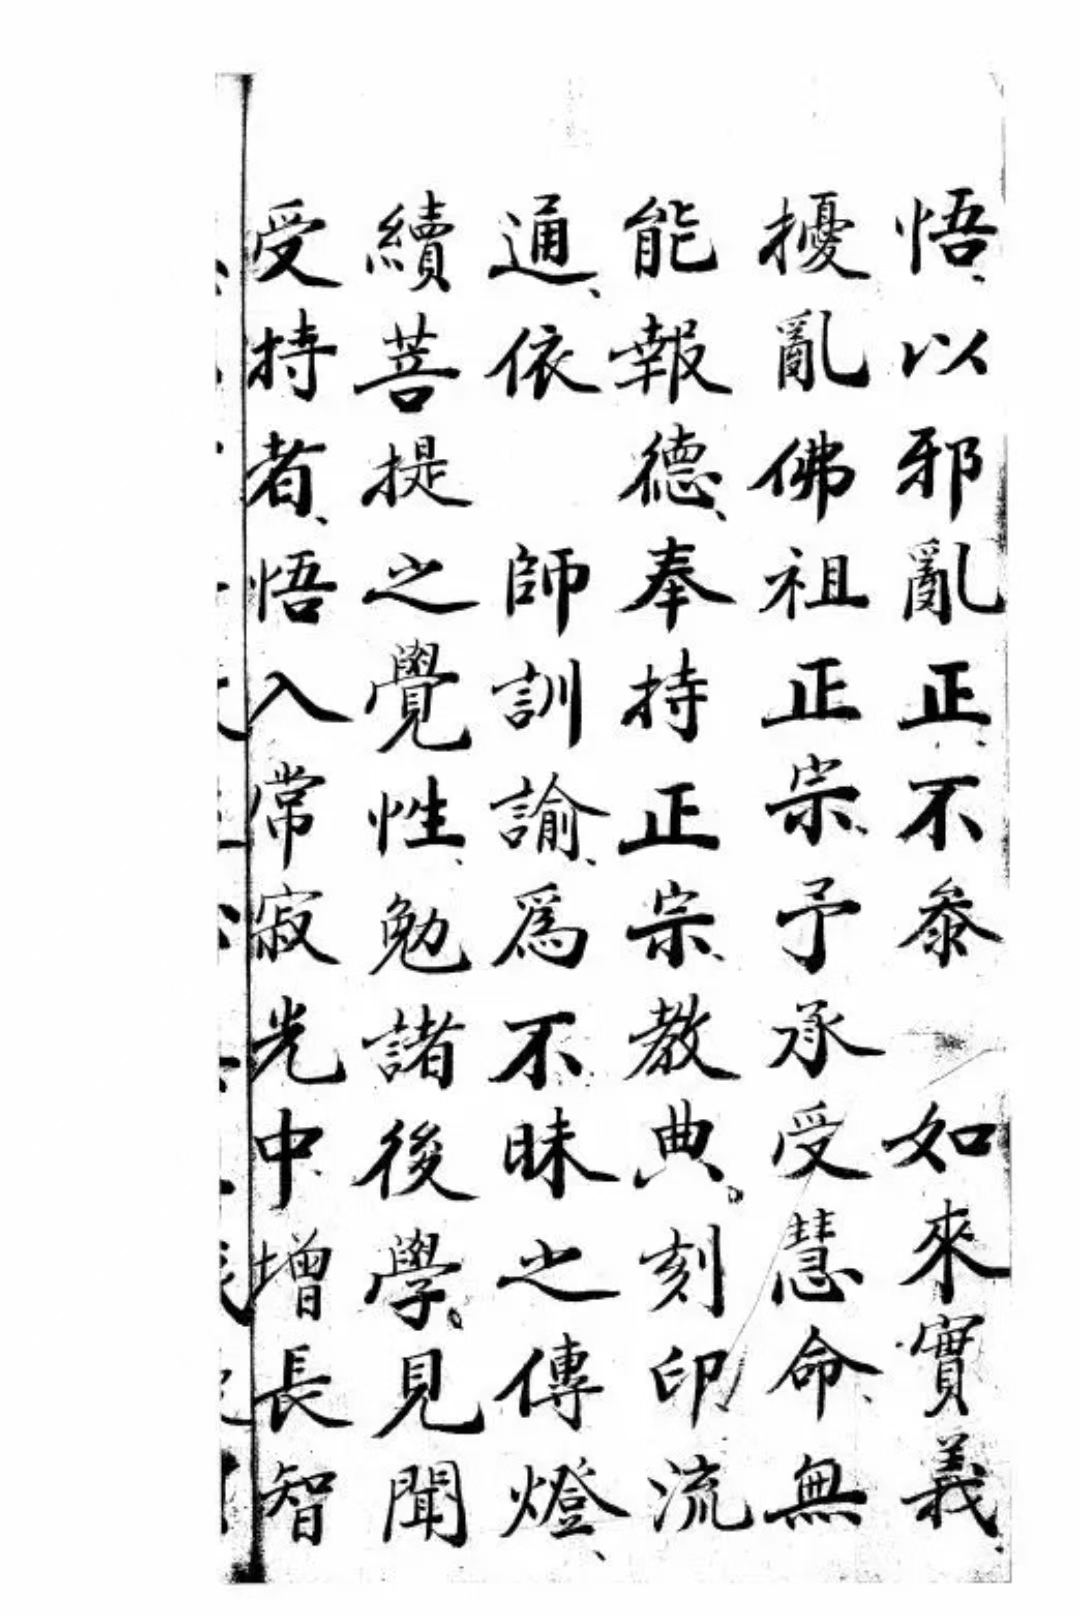 悟、以邪亂正、不叅 如來實義、
擾亂佛祖正宗、予承受慧命、無
能報德、奉持正宗、教典。刻印流
通、依 師訓諭、爲不昧之傳燈、
續菩提之覺性、勉諸後學。見聞
受持者、悟入常寂光中、增長智